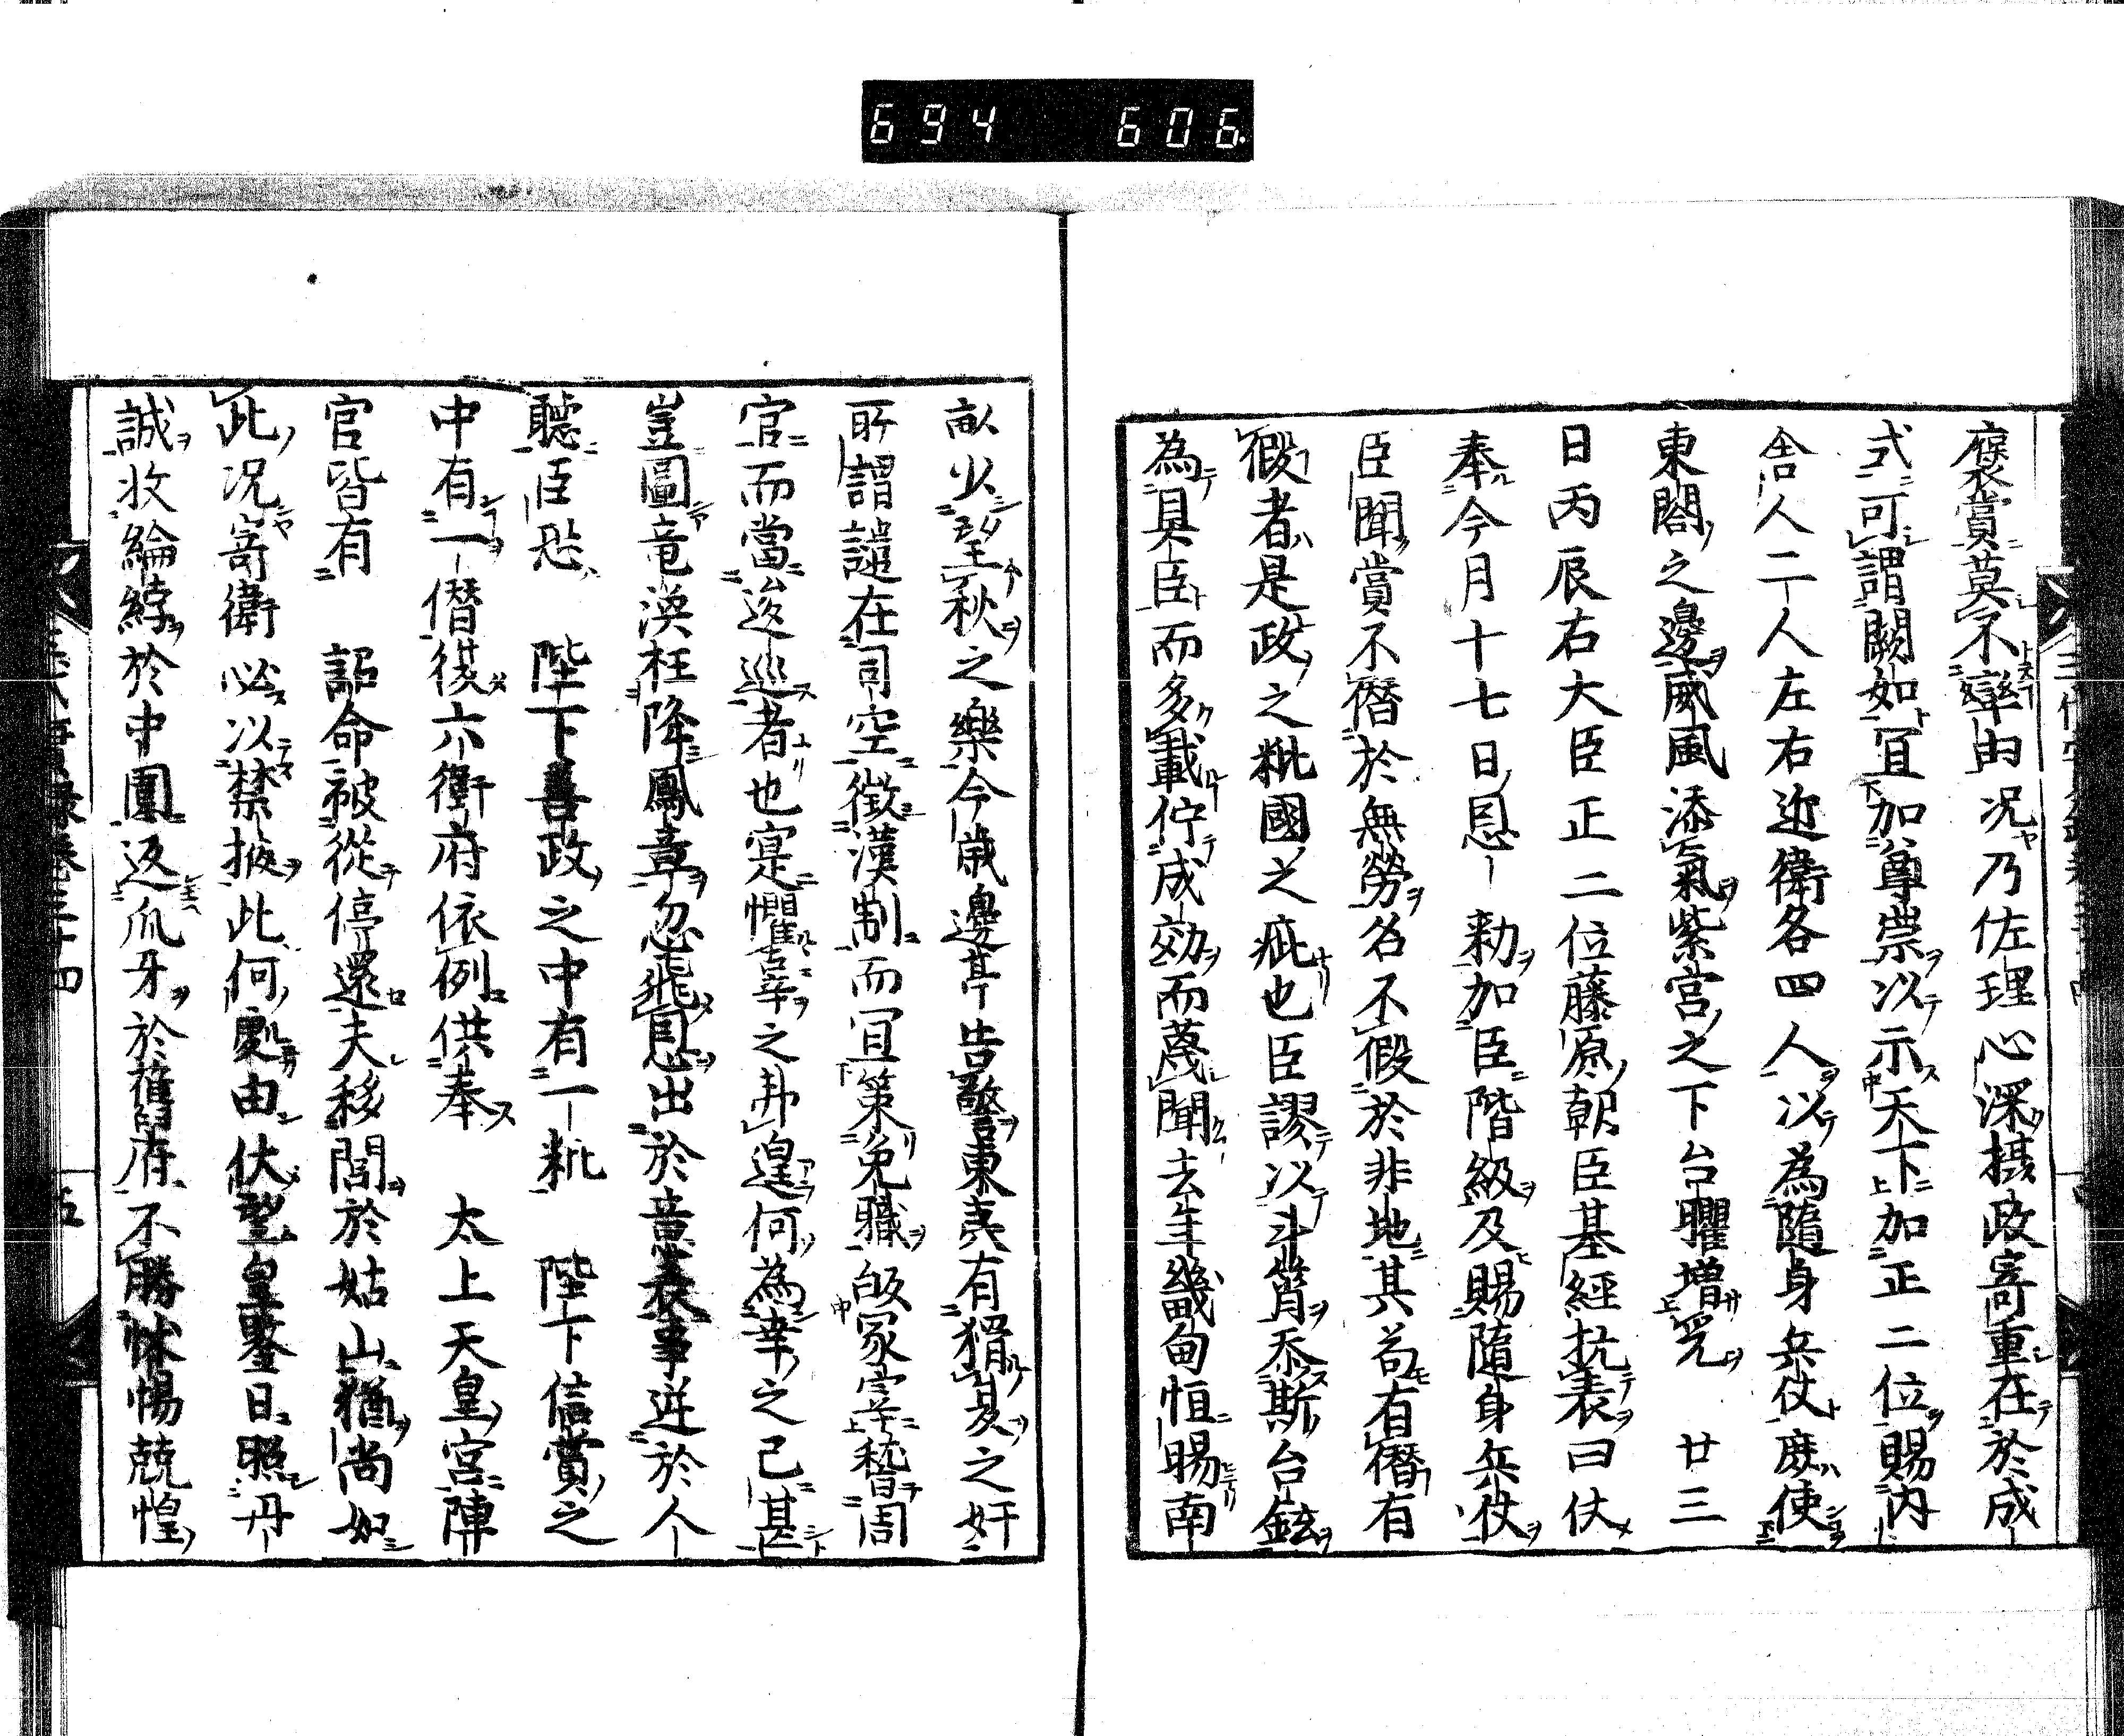 694 606
褒賞莫不率由況乃佐理心深摂政寄重在於成
式可謂闕如宜加尊崇以示天下加正二位賜内
舎人二人左右近衛各四人以為随身兵仗庶使
東閤之邊威風添氣紫宮之下台耀増光 廿三
日丙辰右大臣正二位藤原朝臣基経抗表曰伏
奉今月十七日恩勅加臣階級及賜隨身兵仗
臣聞賞不僭於無勞名不假於非地其苟有僭有
假者是政之粃國之疵也臣謬以斗筲忝斯台鉉
為具臣而多載佇成効而蔑聞去年畿甸恒賜南
畝少望秋之樂今歳邊亭告警東夷有猾夏之奸
所謂譴在司空徴漢制而宜策免職皈冢宰稽周
官而當逡巡者也寔懼辜之弗遑何為幸之已甚
豈圖竜渙枉降鳳章忽飛恩出於意表事迸於人
聴臣愁 陛下善政之中有一粃 陛下信賞之
中有一僭後六衛府依例供奉 太上天皇宮陣
官皆有 詔命被從停還夫移閤於姑山猶尚如
此況寄衛必以禁掖此何處由伏望皇鑒日照丹
誠收綸綍於中圍返爪牙於舊府不勝怵惕兢惶